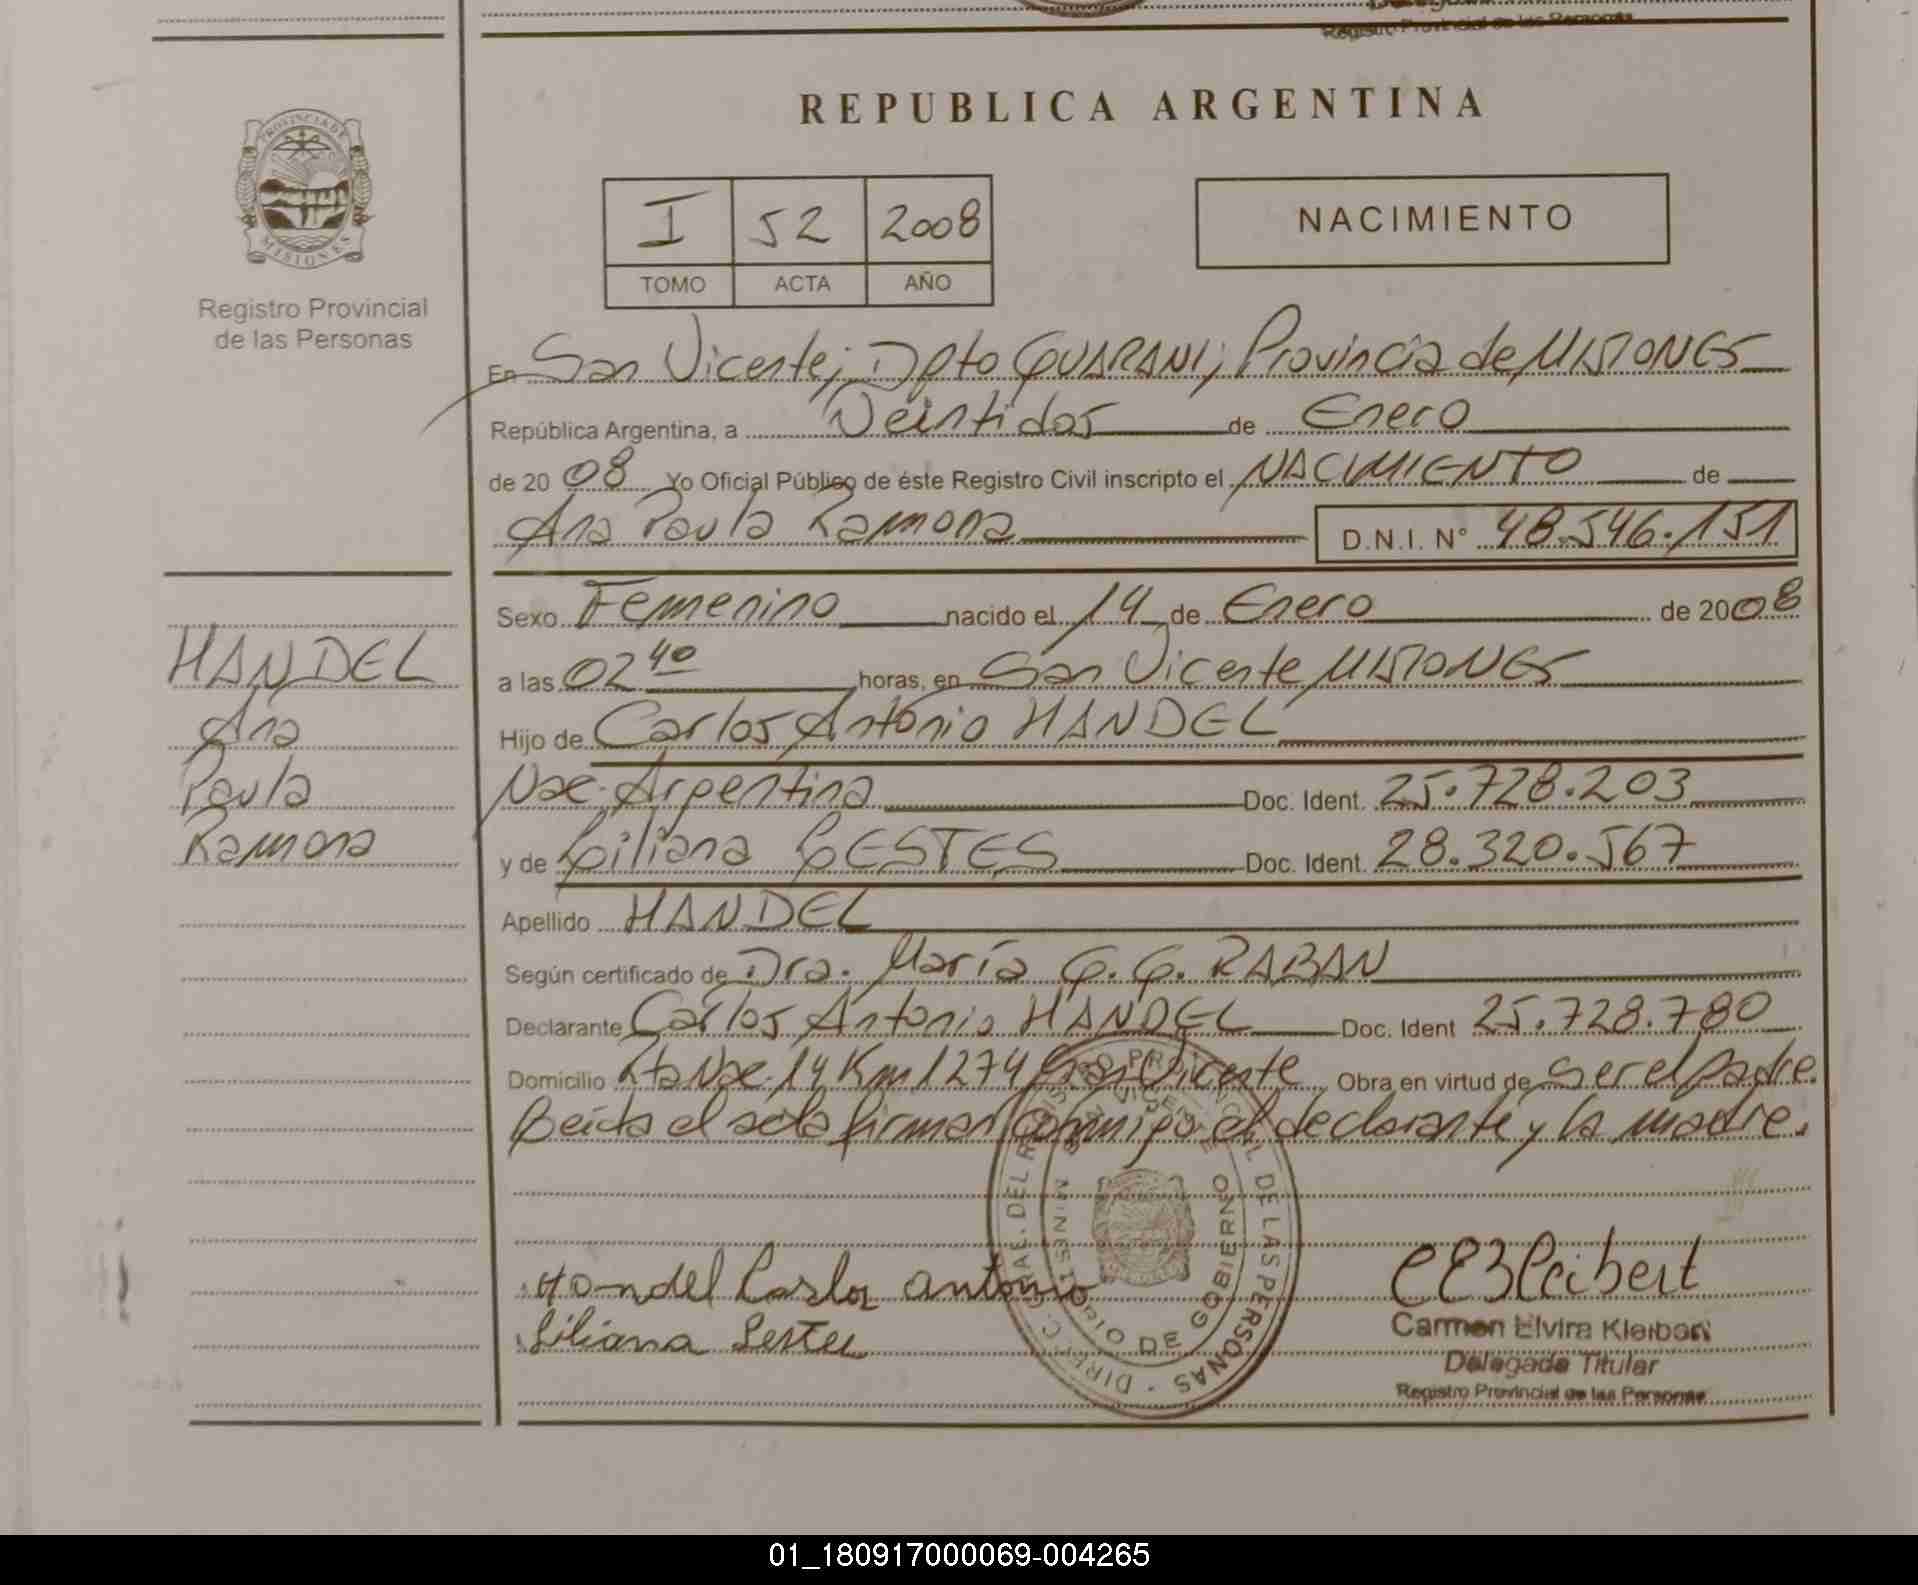 Registro Provincial de las Personas
REPUBLICA ARGENTINA
PROVINCIA DE
MISIONES
Registro Provincial
de las Personas
I 52 2008
TOMO ACTA AÑO
NACIMIENTO
En San Vicente, Dpto GUARANI, Provincia de MISIONES
República Argentina, a Veintidos de Enero
de 2008 Yo Oficial Público de éste Registro Civil inscripto el NACIMIENTO de
Ana Paula Ramona D.N.I. N° 48.546.151
Sexo Femenino nacido el 14 de Enero de 2008
a las 02 40 horas, en San Vicente MISIONES
Hijo de Carlos Antonio HANDEL
Nac. Argentina Doc. Ident. 25.728.203
y de Liliana LESTES Doc. Ident. 28.320.567
Apellido HANDEL
Según certificado de Dra. María G. G. RABAN
Declarante Carlos Antonio HANDEL Doc. Ident 25.728.780
Domicilio Rta Nac. 14 Km 1274 San Vicente Obra en virtud de ser el padre.
Leída el acta firman conmigo el declarante y la madre.
HANDEL
Ana
Paula
Ramona
Handel Carlos Antonio
Liliana Lestes
DIREC. GRAL. DEL REGISTRO PROVINCIAL DE LAS PERSONAS
MINISTERIO DE GOBIERNO
Carmen Elvira Kleibert
Delegada Titular
Registro Provincial de las Personas
01_180917000069-004265